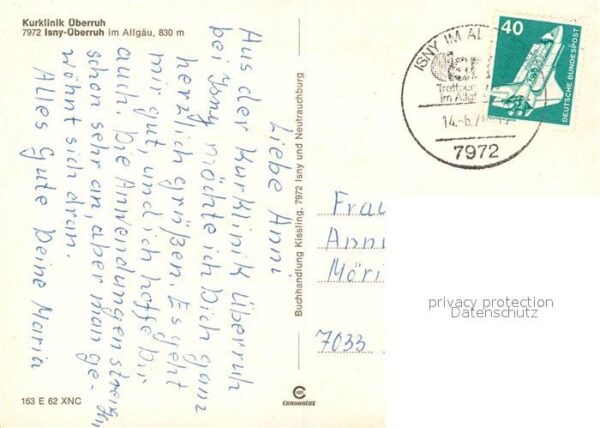 Kurklinik Überruh
7972 Isny-Überruh im Allgäu, 830 m
Liebe Anni
Aus der Kurklinik Überruh
bei Isny möchte ich Dich ganz
herzlich grüßen. Es geht
mir gut, und ich hoffe Dir
auch. Die Anwendungen
schon sehr an, aber man ge-
wöhnt sich dran.
Alles Gute Deine Maria
163 E 62 XNC
Buchhandlung Kissling, 7972 Isny und Neutrauchburg
CHROMOLUX
ISNY IM AL
im Allgä
14.-6.7
7972
40
DEUTSCHE BUNDESPOST
Frau
Anni
Möri
7033
privacy protection
Datenschutz